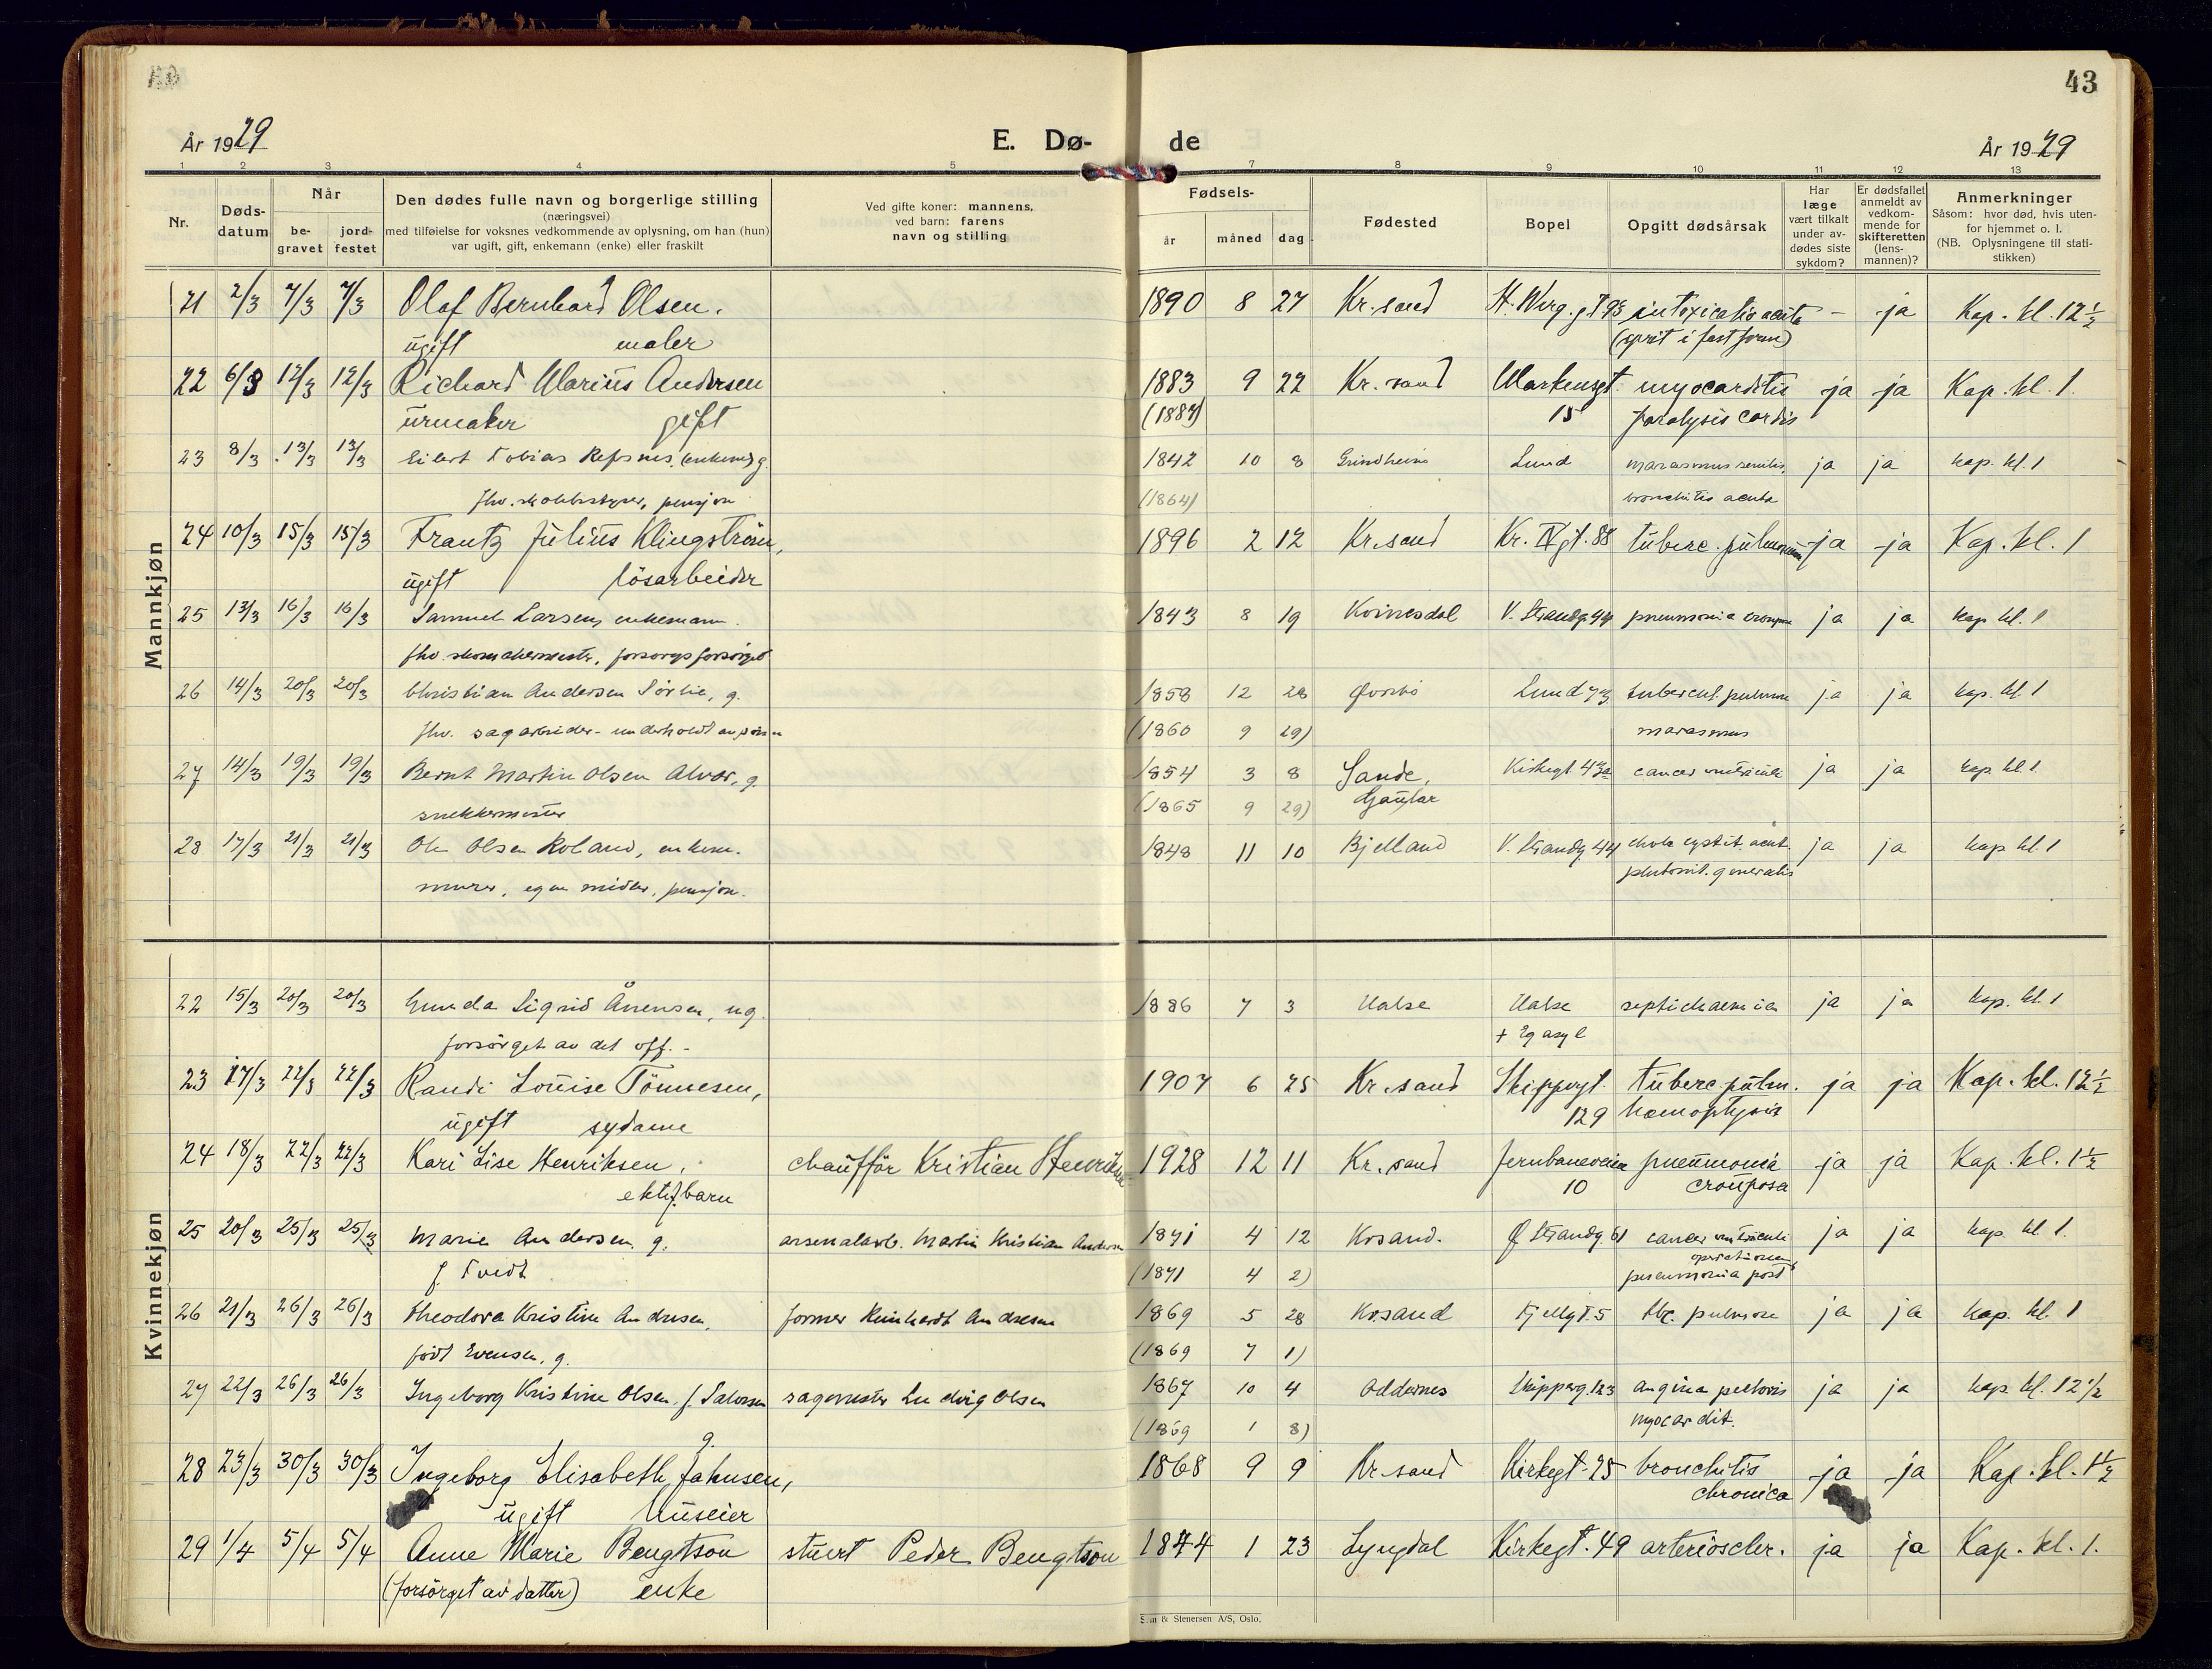 43
År 1929
E. Dø-
de
År 1929
1 2 3 4 5 7 8 9 10 11 12 13
Nr.
Døds-
datum
Når
be-
gravet
jord-
festet
Den dødes fulle navn og borgerlige stilling
(næringsvei)
med tilføielse for voksnes vedkommende av oplysning, om han (hun)
var ugift, gift, enkemann (enke) eller fraskilt
Ved gifte koner: mannens,
ved barn: farens
navn og stilling
Fødsels-
år måned dag
Fødested
Bopel
Opgitt dødsårsak
Har
læge
vært tilkalt
under av-
dødes siste
sykdom?
Er dødsfallet
anmeldt av
vedkom-
mende for
skifteretten
(lens-
mannen)?
Anmerkninger
Såsom: hvor død, hvis uten-
for hjemmet o. l.
(NB. Oplysningene til stati-
stikken)
Mannkjøn
21 2/3 7/3 7/3 Olaf Bernhard Olsen. 1890 8 27 Kr.sand H. Werg. gt. 93 intoxicatio acuta - ja Kap. kl. 12 1/2
ugift maler (sprit i fast form)
22 6/3 12/3 12/3 Richard Marius Andersen 1883 9 22 Kr.sand Markensgt. myocarditis ja ja Kap. kl. 1.
urmaker gift (1884) 15 paralysis cordis
23 8/3 13/3 13/3 Eilert Tobias Refsnes, (enkem) g. 1842 10 8 Grindheim Lund marasmus senilis, ja ja kap. kl. 1
fhv. skolebestyrer, pensjon (1864) bronchitis acuta
24 10/3 15/3 15/3 Frantz Julius Klingström, 1896 2 12 Kr.sand Kr. IV gt. 88 tuberc. pulmonum ja ja Kap. kl. 1
ugift lösarbeider
25 13/3 16/3 16/3 Samuel Larsen, enkemann. 1843 8 19 Kvinesdal V. Strandg. 44 pneumonia crouposa ja ja kap kl. 1
fhv. skomakermester, forsorgsforsørget
26 14/3 20/3 20/3 Christian Andersen Sørlie, g. 1858 12 28 Øvrebø Lund 73 tubercul. pulmon ja ja kap. kl. 1
fhv. sagarbeider - underholdt av sønn (1860 9 29) marasmus
27 14/3 19/3 19/3 Bernt Martin Olsen Alvær, g. 1854 3 8 Sande, Kirkegt 43a cancer ventriculi ja ja kap kl 1.
snekkermester (1865 9 29) Gaular
28 17/3 21/3 21/3 Ole Olsen Roland, enkem. 1848 11 10 Bjelland V. Strandg 44 cholecystit. acut. ja ja kap kl 1
murer, egne midler, pensjon. peritonit. generalis
Kvinnekjøn
22 15/3 20/3 20/3 Gunda Sigrid Ånensen, ug. 1886 7 3 Halse Halse septichaemia ja ja kap. kl. 1
forsørget av det off. - + Eg asyl
23 17/3 22/3 22/3 Randi Louise Tönnesen, 1907 6 25 Kr.sand Skippergt. tuberc. pulm. ja ja Kap. kl. 12 1/2
ugift sydame 129 hæmoptysis
24 18/3 22/3 22/3 Kari Lise Henriksen, chaufför Kristian Henriksen 1928 12 11 Kr.sand Jernbaneveien pneumonia ja ja Kap. kl. 1 1/2
ektef. barn 10 crouposa
25 20/3 25/3 25/3 Marie Andersen, g. arsenalarb. Martin Kristian Andersen 1841 4 12 Krsand. Ø Strandg. 61 cancer ventriculi ja ja kap. kl 1.
f. Tvedt (1871 4 2) pneumonia post operationem
26 21/3 26/3 26/3 Theodora Kristine Andresen, former Reinhardt Andresen 1869 5 28 Krsand Fjellgt. 5 tbc. pulmon ja ja kap. kl 1
født Evensen, g. (1869 7 1)
27 22/3 26/3 26/3 Ingeborg Kristine Olsen, f. Salvesen sagmester Ludvig Olsen 1867 10 4 Oddernes Skipperg. 123 angina pectoris ja ja kap. kl. 12 1/2
g. (1869 1 8) myocardit.
28 23/3 30/3 30/3 Ingeborg Elisabeth Jahnsen, 1868 9 9 Kr.sand Kirkegt. 25 bronchitis ja ja Kap. kl. 1 1/2
ugift huseier chronica
29 1/4 5/4 5/4 Anne Marie Bengtson stuert Peder Bengtson 1844 1 23 Lyngdal Kirkegt. 49 arterioscler. ja ja Kap. kl. 1.
(forsörget av datter) enke
Sem & Stenersen A/S, Oslo.